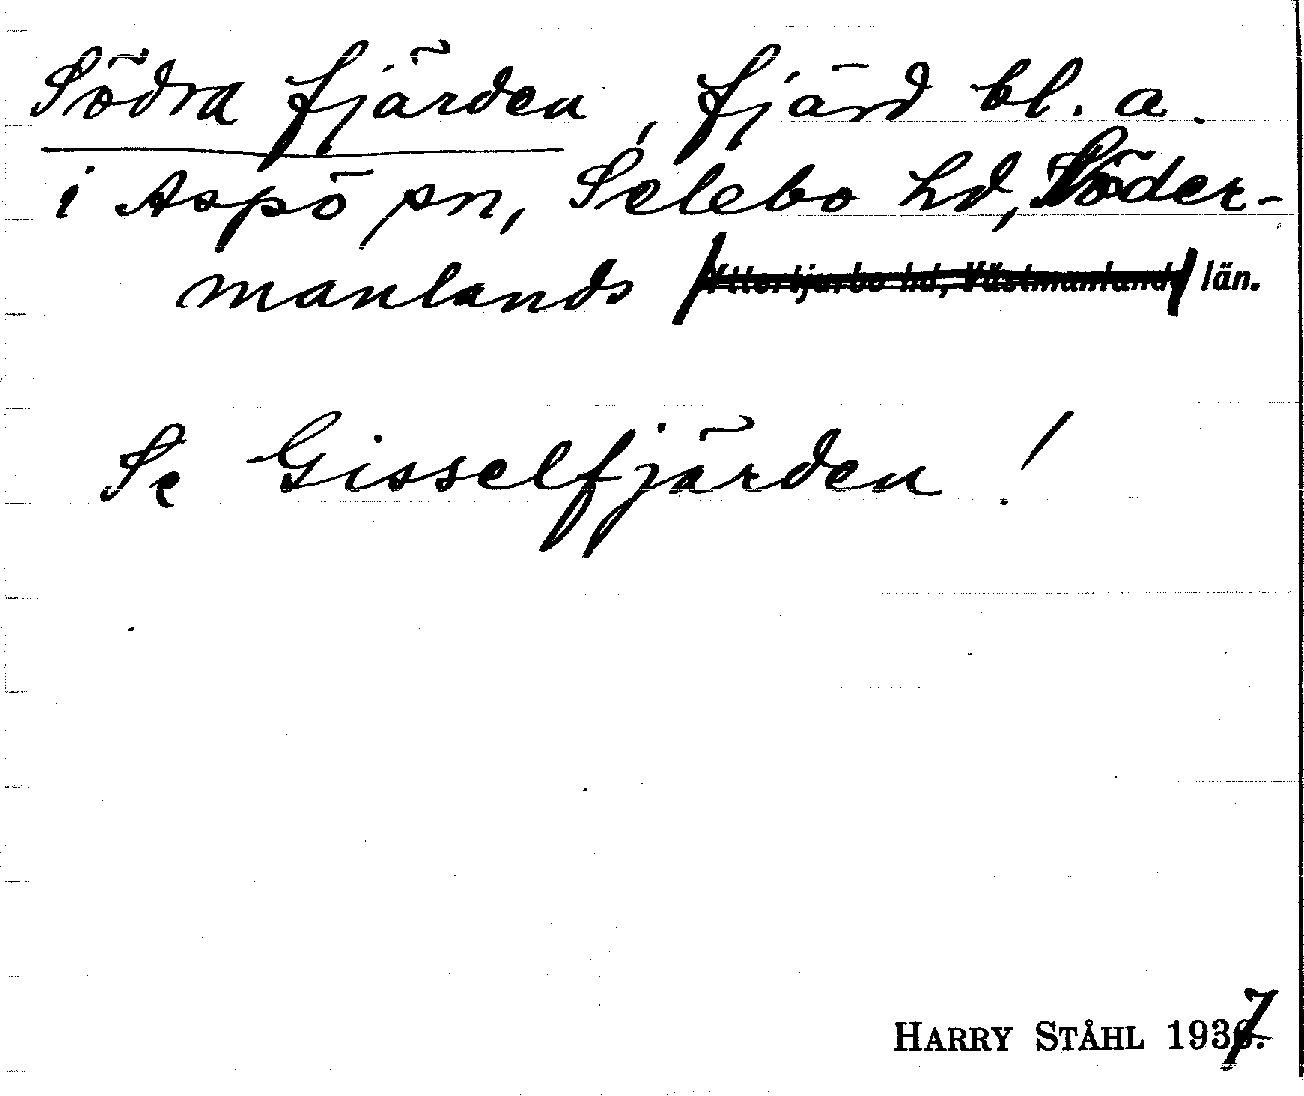 Södra fjärden, fjärd bl. a.
i Aspö sn, Selebo hd, Söder-
manlands Yttertjurbo hd, Västmanlands län.
Se Gisselfjärden!
HARRY STÅHL 1937.